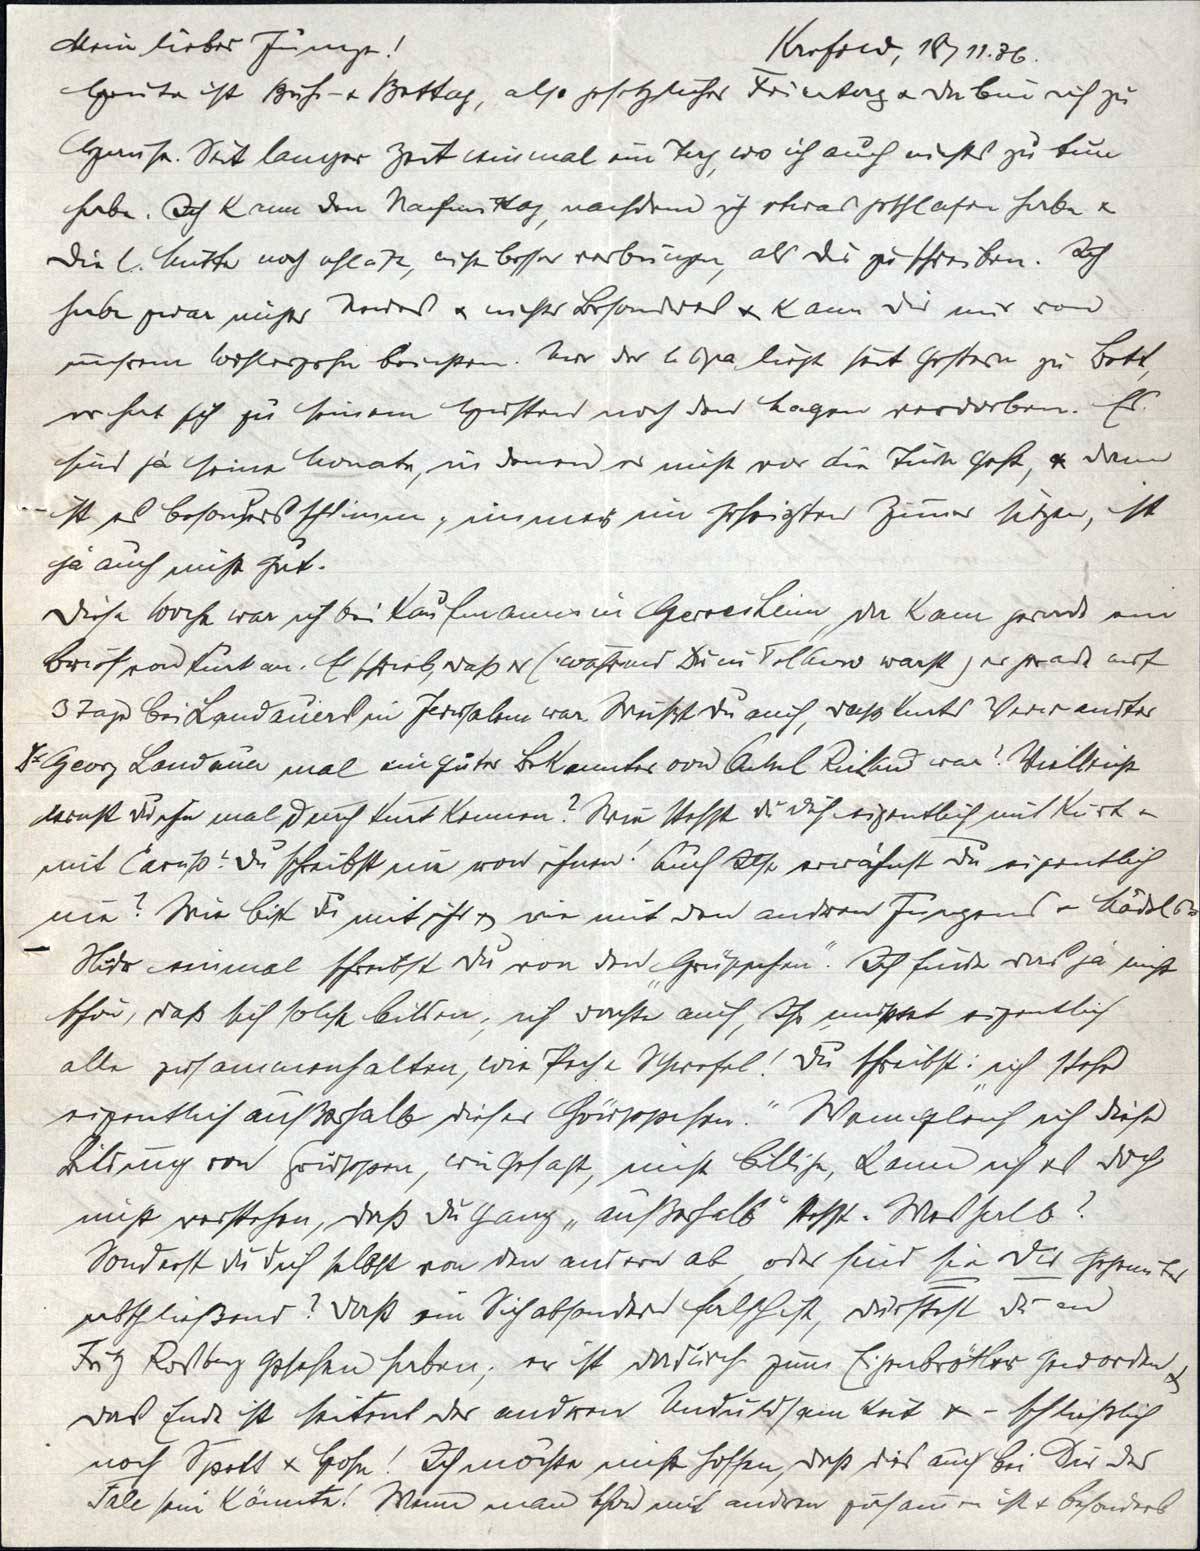 Mein lieber Junge! Krefeld, 18/11.36.
Heute ist Buß- & Bettag, also gesetzlicher Feiertag & da bin ich zu
Hause. Seit langer Zeit einmal ein Tag, wo ich auch nichts zu tun
habe. Ich kann den Nachmittag, nachdem ich etwas geschlafen habe &
die l. Mutter noch schläft, nicht besser verbringen, als Dir zu schreiben. Ich
habe zwar nichts Neues & nichts Besonderes & kann Dir nur von
unserem Wohlergehn berichten. Nur der l. Opa liegt seit gestern zu Bett,
er hat sich zu seinem Husten noch den Magen verdorben. Es
sind ja seine Monate, in denen er nicht vor die Türe geht, & dann
ist es besonders schlimm; immer im geheizten Zimmer sitzen, ist
ja auch nicht gut.
Diese Woche war ich bei Kaufmanns in Gerresheim, da kam gerade ein
Brief von Kurt an. Er schrieb, daß er (während Du in Tel Aviv warst) gerade auf
3 Tage bei Landauers in Jerusalem war. Weißt Du auch, daß Kurts Verwandter
Dr Georg Landauer mal ein guter Bekannter von Onkel Richard war? Vielleicht
lernst Du ihn mal durch Kurt kennen? Wie stehst Du Dich eigentlich mit Kurt &
mit Du schreibst nie von ihnen! Auch Ilse erwähnst Du eigentlich
nie? Wie bist Du mit ihr & wie mit den anderen Jungens & Mädels?
einmal schreibst Du von den „Grüppchen“. Ich finde das ja nicht
schön, daß sich solche bilden; ich dachte auch, Ihr müßtet eigentlich
alle zusammenhalten, wie Pech & Schwefel! Du schreibst: „ich stehe
eigentlich außerhalb dieser Grüppchen.“ Wenngleich ich diese
Bildung von Gruppen, wie gesagt, nicht billige, kann ich es doch
nicht verstehen, daß Du ganz „außerhalb“ stehst. Weshalb?
Sonderst Du Dich selbst von den andern ab, oder sind sie Dir gegenüber
abschließend? Daß ein Sichabsondern falsch ist, dürftest Du an
Fritz Roßberg gesehen haben; er ist dadurch zum Eigenbrötler geworden &
das Ende ist seitens der anderen Unduldsamkeit & – schließlich
noch Spott & Hohn! Ich möchte nicht hoffen, daß dies auch bei Dir der
Fall sein könnte! Wenn man schon mit anderen zusammen ist & besonders